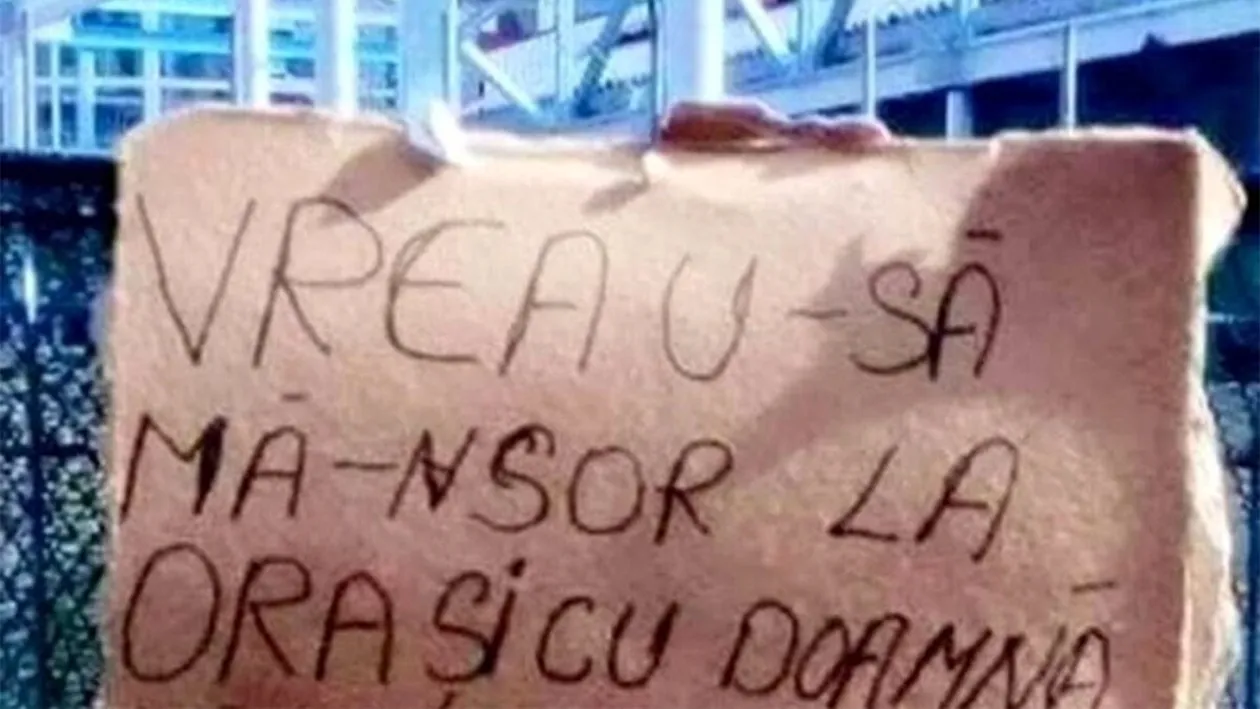 VREAU-SĂ
MĂ-NSOR LA
ORAȘICU DOAMNĂ